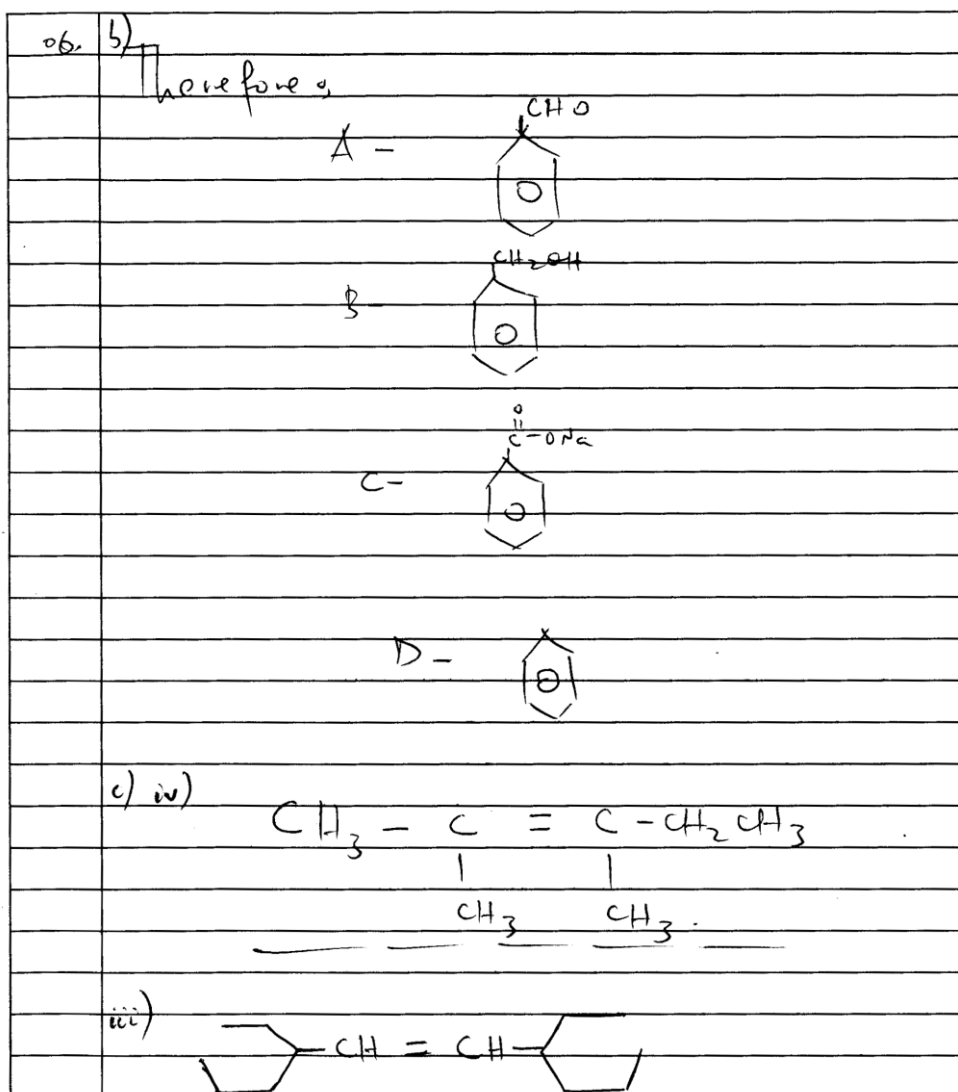 06. b)
Therefore,
CHO
A -
CH2OH
B -
O
||
C-ONa
C -
D -
c) iv)
CH3 - C = C - CH2CH3
| |
CH3 CH3.
iii)
-CH = CH-